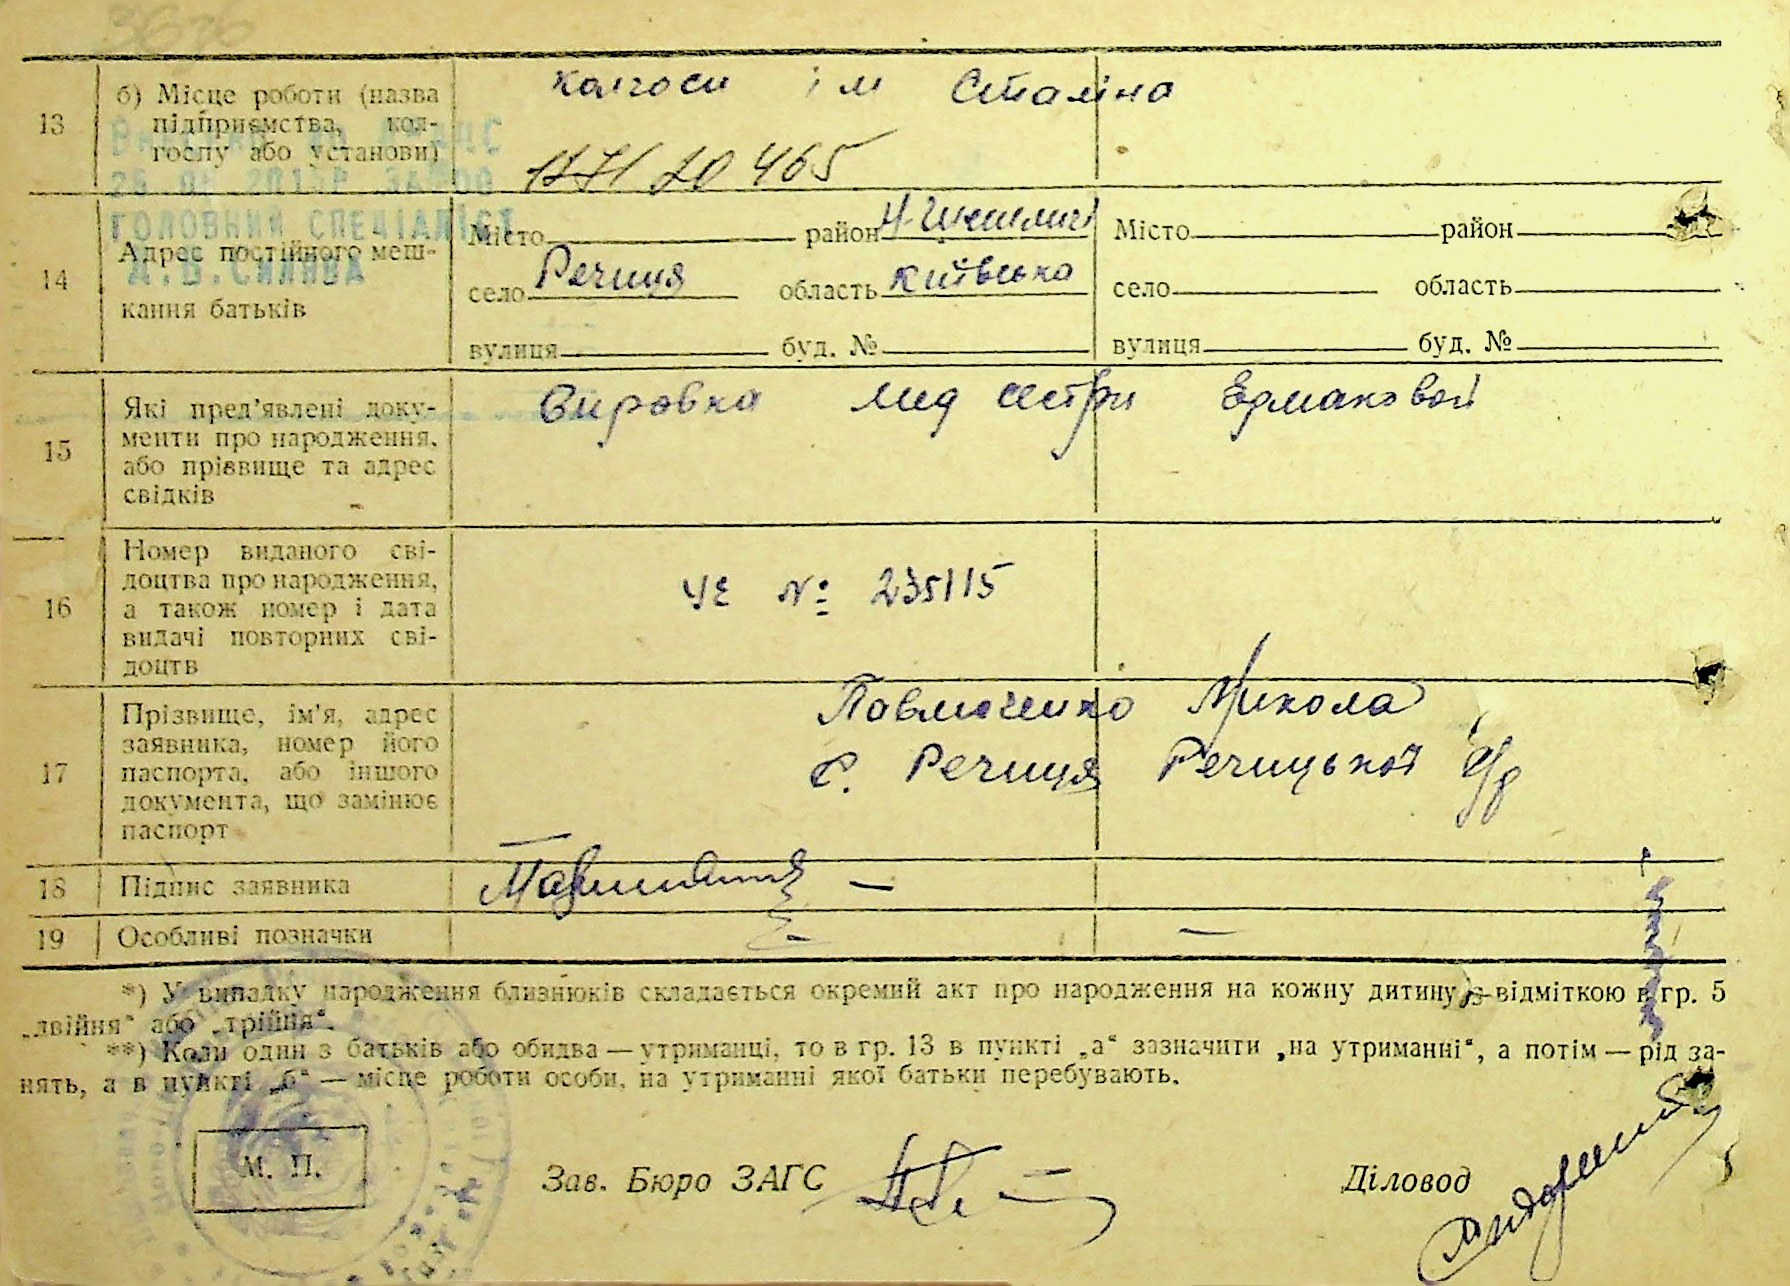 3676
13 б) Місце роботи (назва підприємства, колгоспу або установи) колгосп ім Сталіна
20465
ГОЛОВНИЙ СПЕЦІАЛІСТ
14 Адрес постійного мешкання батьків
Місто район Місто район
село Речиця область Київська село область
вулиця буд. № вулиця буд. №
15 Які пред'явлені доку-
менти про народження,
або прізвище та адрес
свідків
Справка мед сестри Ермаковой
16 Номер виданого сві-
доцтва про народження,
а також номер і дата
видачі повторних сві-
доцтв
УЕ № 235115
17 Прізвище, ім'я, адрес
заявника, номер його
паспорта, або іншого
документа, що замінює
паспорт
Павлюченко Микола
с. Речиця Речицької с/р
18 Підпис заявника —
19 Особливі позначки — —
*) У випадку народження близнюків складається окремий акт про народження на кожну дитину з відміткою в гр. 5
„двійня“ або „трійня“.
**) Коли один з батьків або обидва — утриманці, то в гр. 13 в пункті „а“ зазначити „на утриманні“, а потім — рід за-
нять, а в пункті „б“ — місце роботи особи, на утриманні якої батьки перебувають.
М. П. Зав. Бюро ЗАГС Діловод